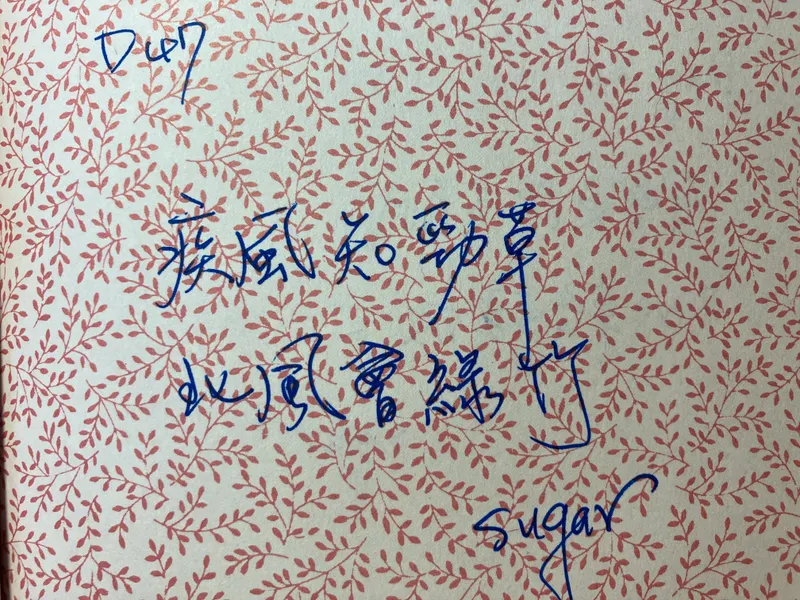 D47
疾風知勁草
北風會綠竹
sugar